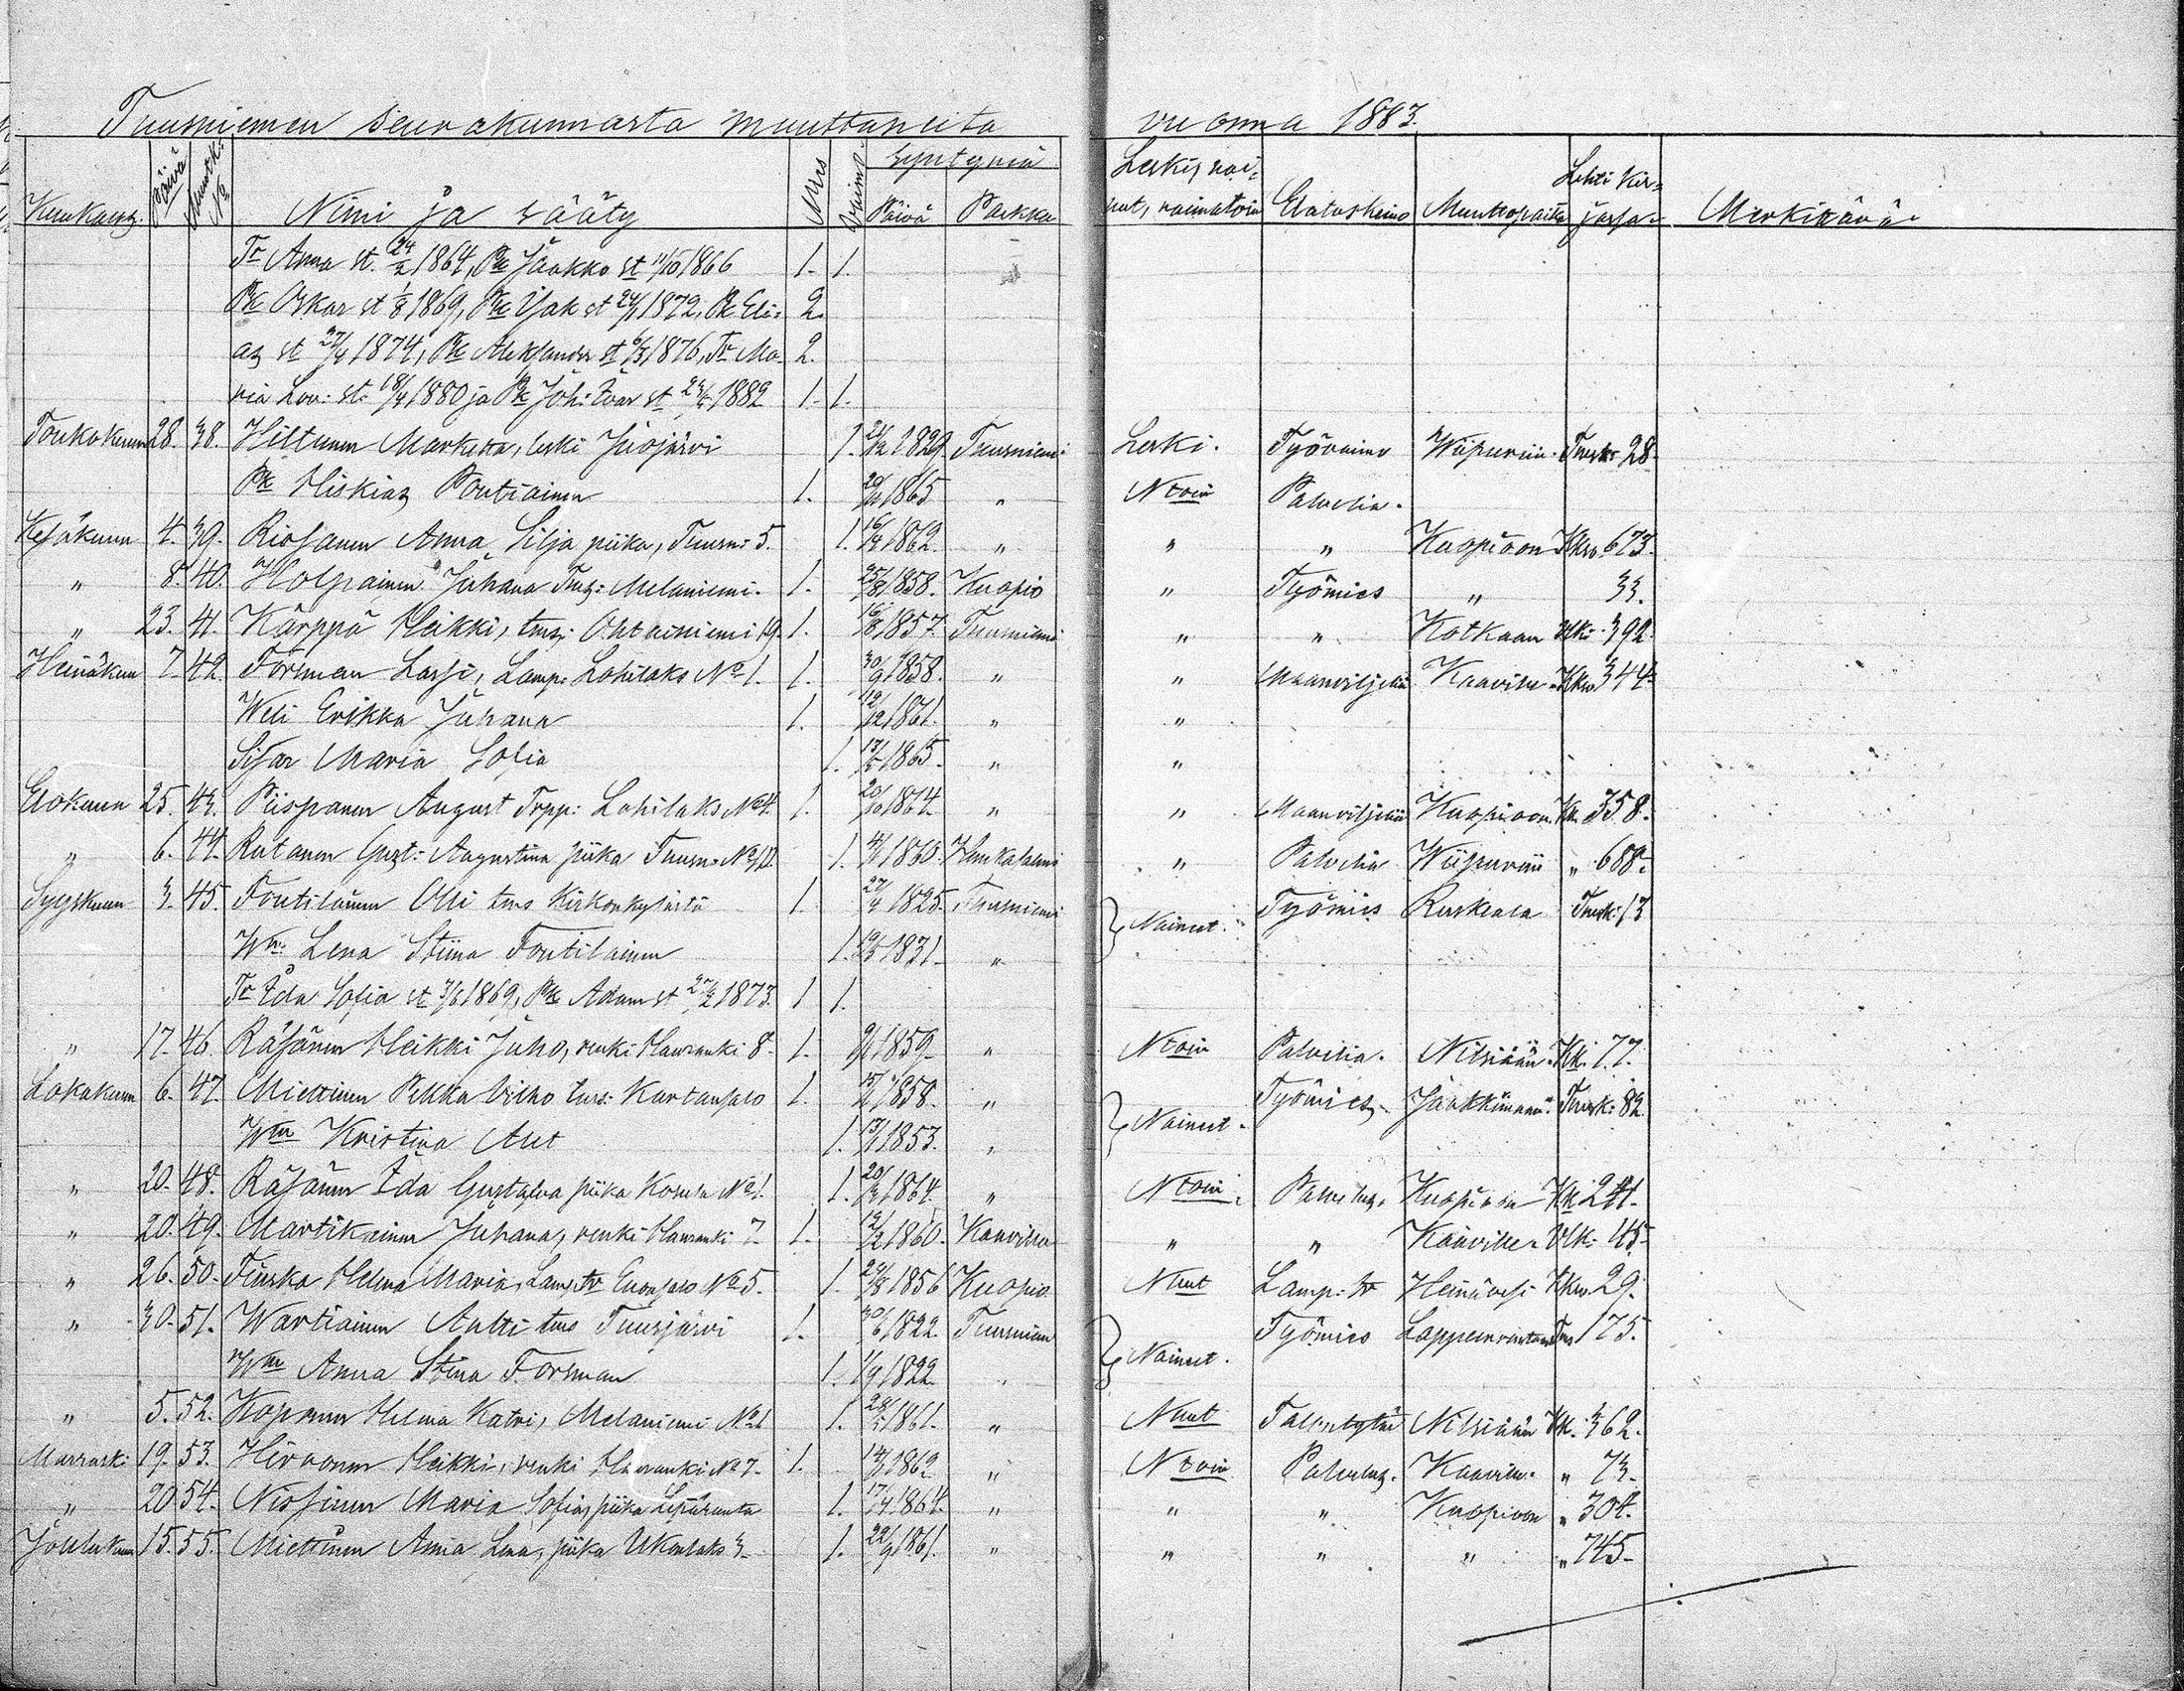 Tuusniemen seurakunnasta muuttaneita vuonna 1883.
Kuukausi. Päivä Muuttok: No Nimi ja sääty Mies Vaimo Syntynyt Päivä Paikka Leski, nai- nut, naimatoin Elatuskeino Muuttopaikka Lehti kir- jassa. Merkittävä
Tr Anna st. 24/2 1864, Pk Jaakko st 11/10 1866 1. 1.
Pk Oskar st 1/8 1869, Pk Isak st 24/1 1872, Pk Eli- 2.
as st 27/4 1874, Pk Aleksander st 6/3 1876, Tr Ma- 2.
ria Lov: st. 18/4 1880 ja Pk Joh: Ivar st 1882 1. 1.
Toukokuun 28. 38. Hiltunen Marketta, leski Juojärvi 1. 1829. Tuusniemi Leski. Työvaimo Wiipuriin. 28.
Pk Hiskias Pontiainen 1. 1865 „ Ntoin Palvelia.
Kesäkuun 4. 39. Riosanen Anna Silja piika, Tuusn: 5. 1. 1862. „ „ „ Kuopioon Kko 673.
„ 8. 40. Holpainen Juhana Melaniemi. 1. 25/8 1858. Kuopio „ Työmies „ 33.
„ 23. 41. Kärppä Heikki, tms: Ohtaniemi 19. 1. 16/8 1857. Tuusniemi „ „ Kotkaan 392.
Heinäkuun 7. 42. Forsman Lassi, Lamp: Lohilaks No 1. 1. 30/9 1858. „ „ Maanviljeliä Kaaville Kko 344.
Weli Erikka Juhana 1. 12/12 1861. „ „
Sisar Maria Sofia 1. 1865. „ „
Elokuun 25. 43. Piispanen August Torpp: Lohilaks No 4. 1. 20/10 1874. „ „ Maanviljeliä Kuopioon. Kk. 358.
„ 6. 44. Rutanen Gust: Augustina piika Tuusn: 1. 1860. Hankasalmi „ Palvelia Wiipuriin „ 688.
Syyskuun 3. 45. Tontilainen Olli tms Kirkonkylästä 1. 27/4 1825. Tuusniemi } Nainut. Työmies Ruskeala 13
Wm: Lena Stiina Tontilainen 1. 1831. „
Tr Ida Sofia st 1869, Pk Adam st 1873. 1 1.
„ 17. 46. Räsänen Heikki Juho, renki Hauranki 8. 1. 1859. „ Ntoin Palvelia. Nilsiään. Kk. 77.
Lokakuun 6. 47. Miettinen Pekka Vilho tms: Kartansalo 1. 1858. „ } Nainut. Työmies. Jaakkimaan. 82.
Wm Kristina Aut 1. 1853. „
„ 20. 48. Räsänen Ida Gustafva piika Kosula No 1. 1. 1864. „ Ntoin. Palvelus. Kuopioon Kk 241.
„ 20. 49. Martikainen Juhana, renki Hauranki 7. 1. 12/2 1860. Kaavilla „ „ Kaaville. 45.
„ 26. 50. Tiirska Helena Maria, Lamp: tr Enonsalo No 5. 1. 29/8 1856 Kuopio Nnut Lamp: tr Heinävesi Kko 29.
„ 30. 51. Wartiainen Antti tms Tuusjärvi 1. 30/6 1822. Tuusniemi } Nainut. Työmies Lappeenrantaan 175.
Wm Anna Stina Forsman 1. 1/9 1822.
„ 5. 52. Koponen Helena Katri, Melaniemi No 1 1. 1861. „ Nnut Nilsiään Kk. 362.
Marrask: 19. 53. Hirvonen Heikki, renki Hauranki No 7. 1. 1862 „ Ntoin Palvelus. Kaaville. „ 73.
„ 20 54. Niosinen Maria Sofia, piika Lepäranta 1. 1864. „ „ „ Kuopioon „ 304.
Joulukuun 15. 55. Miettinen Anna Lena, piika Ukonlaks 3. 1. 22/9 1861. „ „ „ „ „ 745.